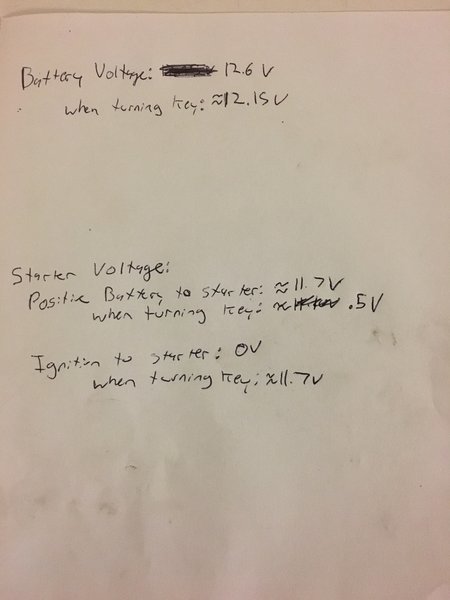 Battery Voltage: 12.6 V
when turning key: ≈12.15V
Starter Voltage:
Positie Battery to starter: ≈11.7V
when turning key: ≈ .5V
Ignition to starter: 0V
when turning key: ≈11.7V